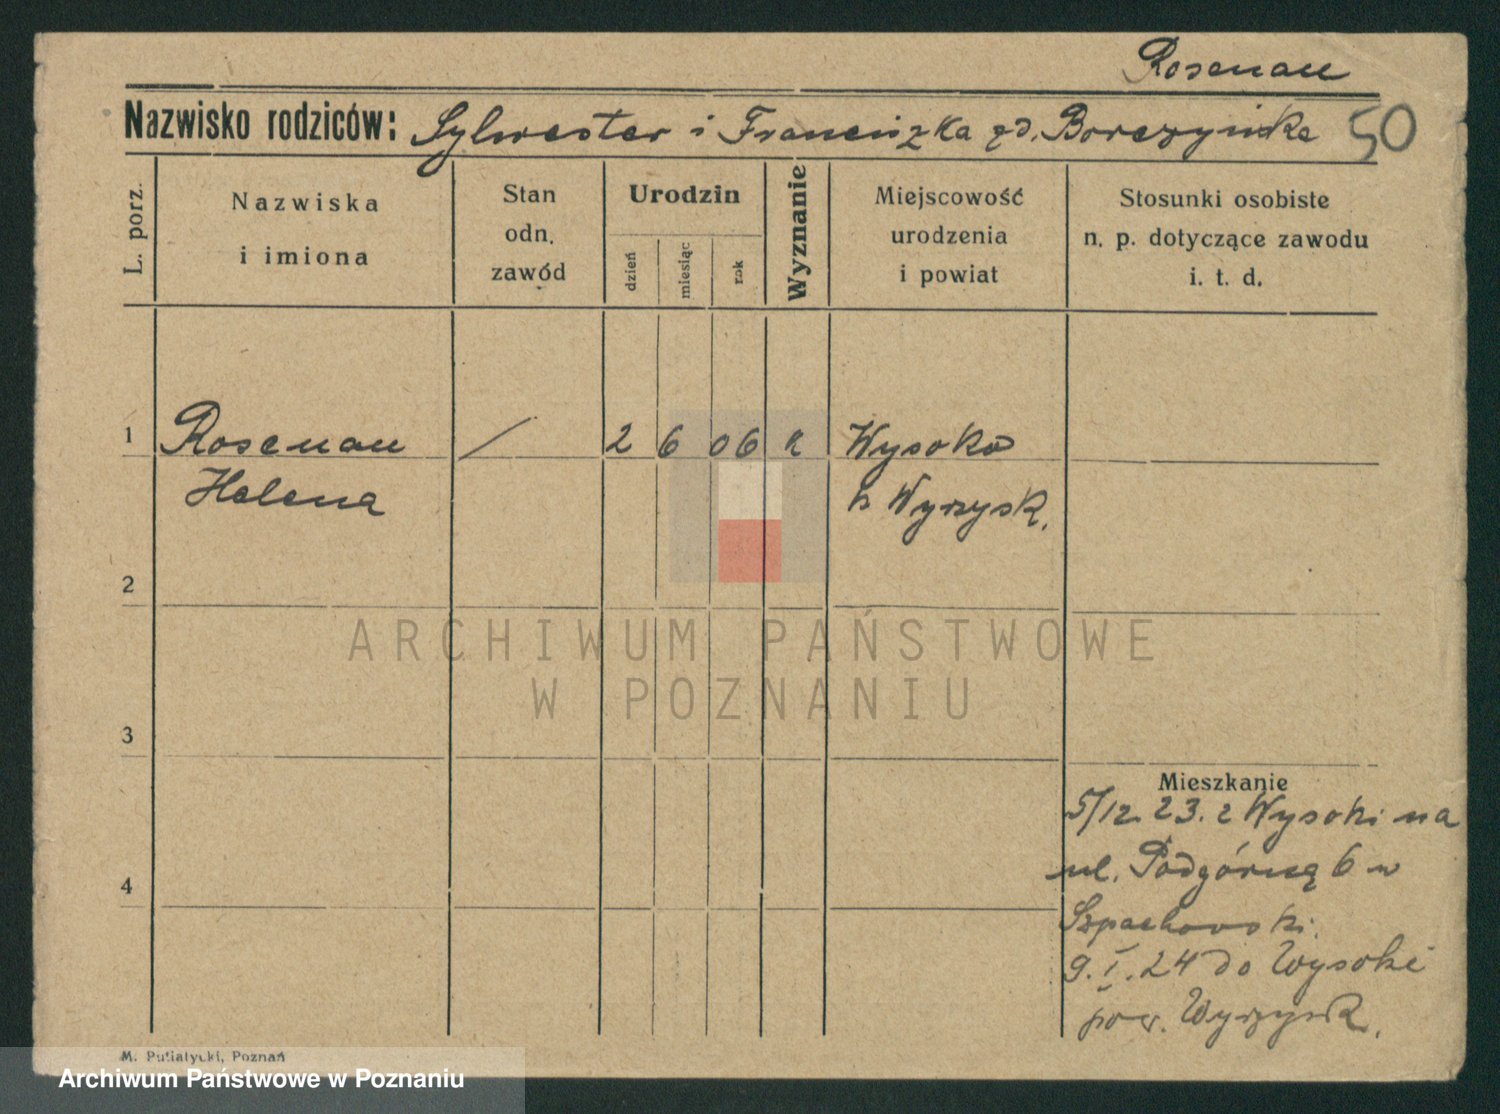 Rosenau
Nazwisko rodziców: Sylwester i Franciszka zd. Borczyńska 50
L. porz.
Nazwiska
i imiona
Stan
odn.
zawód
Urodzin
dzień
miesiąc
rok
Wyznanie
Miejscowość
urodzenia
i powiat
Stosunki osobiste
n. p. dotyczące zawodu
i. t. d.
1 Rosenau / 2 6 06 k Wysoka
Helena Wyrzysk.
2
3
4
ARCHIWUM PAŃSTWOWE
W POZNANIU
Mieszkanie
5/12. 23. z Wysoki na
ul. Podgórną 6 u
Szpachowski.
9. I. 24 do Wysoki
pow. Wyrzysk.
M. Putiatycki, Poznań
Archiwum Państwowe w Poznaniu